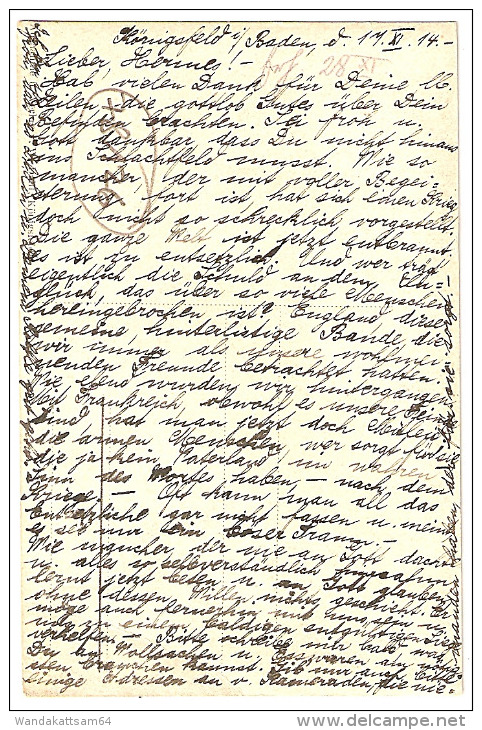 Königsfeld i/ Baden, d. 17. XI. 14.-
Lieber, Hermes! -
erh. 28 XI
Hab vielen Dank für Deine lb.
Zeilen die gottlob Gutes über Dein
Befinden brachten. Sei froh u.
Gott dankbar, dass Du nicht hinaus
aufs Schlachtfeld musst. Wie so
mancher der mit voller Begei-
sterung fort ist, hat sich einen Krieg
doch nicht so schrecklich vorgestellt.
Die ganze Welt ist jetzt entbrannt,
es ist zu entsetzlich. Und wer trägt
eigentlich die Schuld an dem Un-
glück, das über so viele Menschen
hereingebrochen ist? England, diese
gemeine, hinterlistige Bande, die
wir immer als unsere wohlmei-
nenden Freunde betrachtet hatten.
Wie elend wurden wir hintergangen.
Mit Frankreich, obwohl es unsere Feinde
sind, hat man jetzt doch Mitleid,
die armen Menschen, wer sorgt für
die ja kein Vaterland, im wahren
Sinn des Wortes haben, - nach dem
Kriege. - Oft kann man all das
Entsetzliche gar nicht fassen u. meint
es sei nur ein böser Traum. -
Wie mancher, der nie an Gott dachte
u. alles so selbstverständlich hinnahm
lernt jetzt beten u. an Gott glauben,
ohne dessen Willen nichts geschieht. Er
möge auch fernerhin mit uns sein u.
uns zu einem baldigen entgültigen Sieg
verhelfen. - Bitte schreibe mir bald was
Du an Wollsachen u. Esswaren am nötig-
sten brauchen kannst. Gib mir auch bitte
einige Adressen an v. Kameraden, die nie-
Wandakattsam64
www.delcampe.net